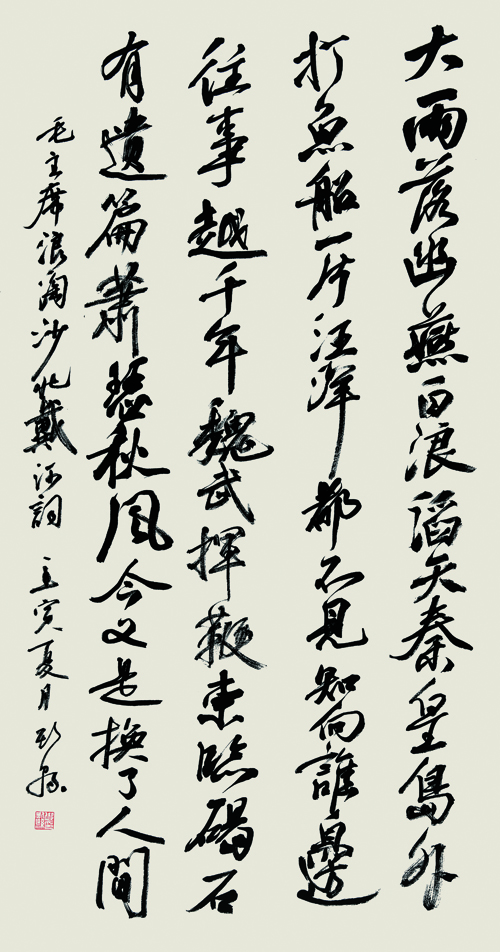 大雨落幽燕白浪滔天秦皇島外
打魚船一片汪洋都不見知向誰邊
往事越千年魏武揮鞭東臨碣石
有遺篇蕭瑟秋風今又是換了人間
毛主席浪淘沙北戴河詞 壬寅夏月